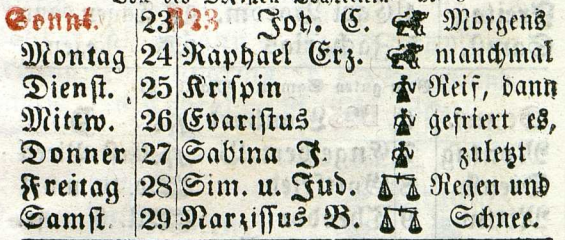 Sonnt. 23 B23 Joh. C. Morgens
Montag 24 Raphael Erz. manchmal
Dienst. 25 Krispin Reif, dann
Mittw. 26 Evaristus gefriert es,
Donner 27 Sabina J. zuletzt
Freitag 28 Sim. u. Jud. Regen und
Samst. 29 Narzissus B. Schnee.